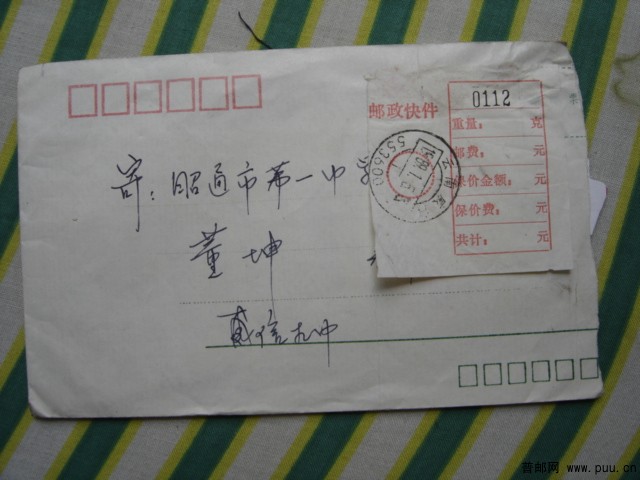 邮政快件
0112
重量： 克
邮费： 元
保价金额： 元
保价费： 元
共计： 元
552600
云南
寄：昭通市第一中
董坤
威信九中
普邮网 www.puu.cn